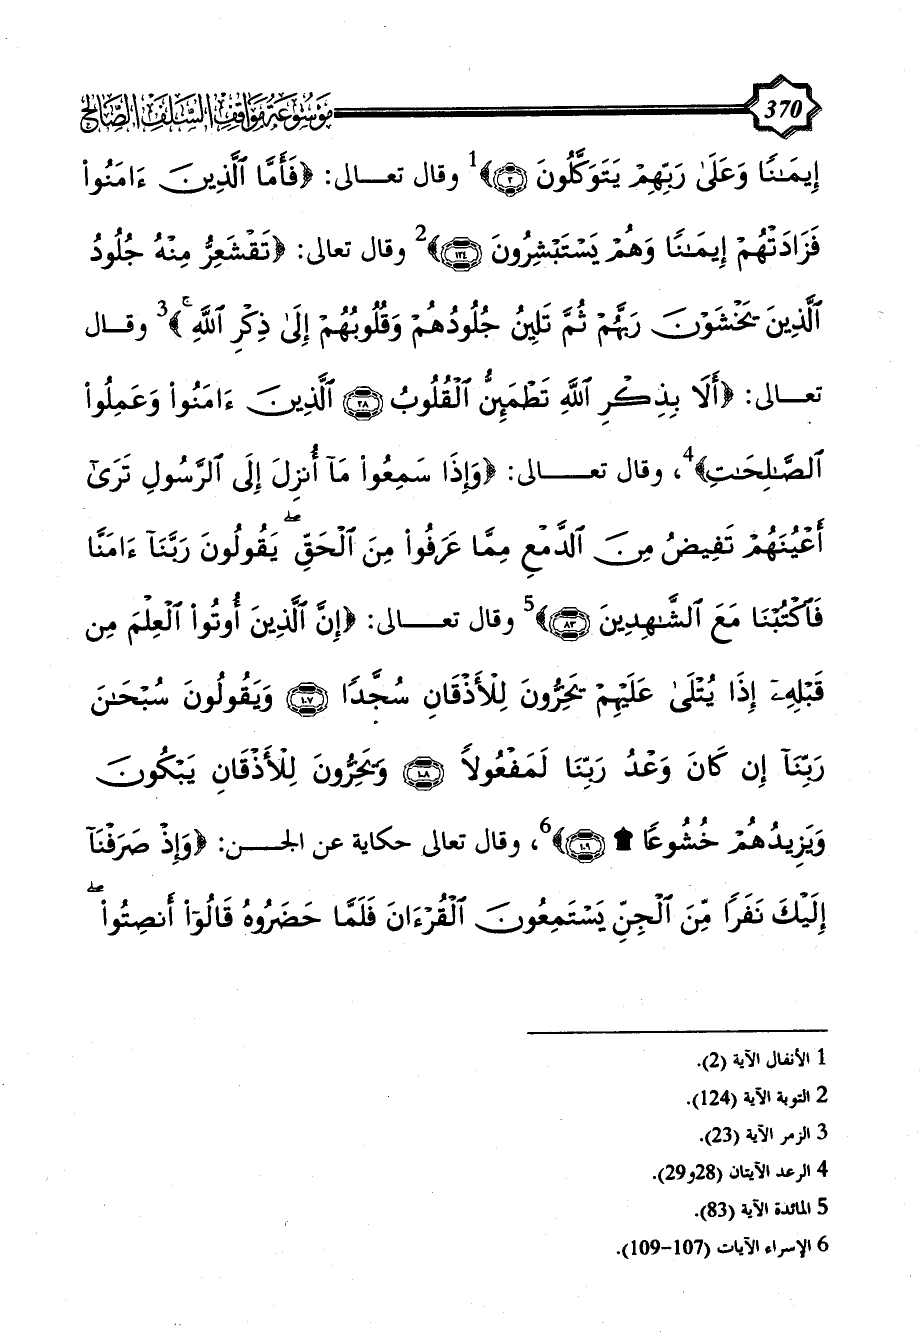 370 موسوعة مواقف السلف الصالح
إِيمَـٰنًا وَعَلَىٰ رَبِّهِمْ يَتَوَكَّلُونَ ٢﴾1 وقال تعـــالى: ﴿فَأَمَّا ٱلَّذِينَ ءَامَنُوا۟
فَزَادَتْهُمْ إِيمَـٰنًا وَهُمْ يَسْتَبْشِرُونَ ١٢٤﴾2 وقال تعالى: ﴿تَقْشَعِرُّ مِنْهُ جُلُودُ
ٱلَّذِينَ يَخْشَوْنَ رَبَّهُمْ ثُمَّ تَلِينُ جُلُودُهُمْ وَقُلُوبُهُمْ إِلَىٰ ذِكْرِ ٱللَّهِ ۚ﴾3 وقــال
تعـــالى: ﴿أَلَا بِذِكْرِ ٱللَّهِ تَطْمَئِنُّ ٱلْقُلُوبُ ٢٨ ٱلَّذِينَ ءَامَنُوا۟ وَعَمِلُوا۟
ٱلصَّـٰلِحَـٰتِ﴾4، وقال تعــــالى: ﴿وَإِذَا سَمِعُوا۟ مَآ أُنزِلَ إِلَى ٱلرَّسُولِ تَرَىٰٓ
أَعْيُنَهُمْ تَفِيضُ مِنَ ٱلدَّمْعِ مِمَّا عَرَفُوا۟ مِنَ ٱلْحَقِّ ۖ يَقُولُونَ رَبَّنَآ ءَامَنَّا
فَٱكْتُبْنَا مَعَ ٱلشَّـٰهِدِينَ ٨٣﴾5 وقال تعـــالى: ﴿إِنَّ ٱلَّذِينَ أُوتُوا۟ ٱلْعِلْمَ مِن
قَبْلِهِۦٓ إِذَا يُتْلَىٰ عَلَيْهِمْ يَخِرُّونَ لِلْأَذْقَانِ سُجَّدًا ١٠٧ وَيَقُولُونَ سُبْحَـٰنَ
رَبِّنَآ إِن كَانَ وَعْدُ رَبِّنَا لَمَفْعُولًا ١٠٨ وَيَخِرُّونَ لِلْأَذْقَانِ يَبْكُونَ
وَيَزِيدُهُمْ خُشُوعًا ١٠٩﴾6، وقال تعالى حكاية عن الجــن: ﴿وَإِذْ صَرَفْنَآ
إِلَيْكَ نَفَرًا مِّنَ ٱلْجِنِّ يَسْتَمِعُونَ ٱلْقُرْءَانَ فَلَمَّا حَضَرُوهُ قَالُوٓا۟ أَنصِتُوا۟ ۖ
1 الأنفال الآية (2).
2 التوبة الآية (124).
3 الزمر الآية (23).
4 الرعد الآيتان (28و29).
5 المائدة الآية (83).
6 الإسراء الآيات (107-109).